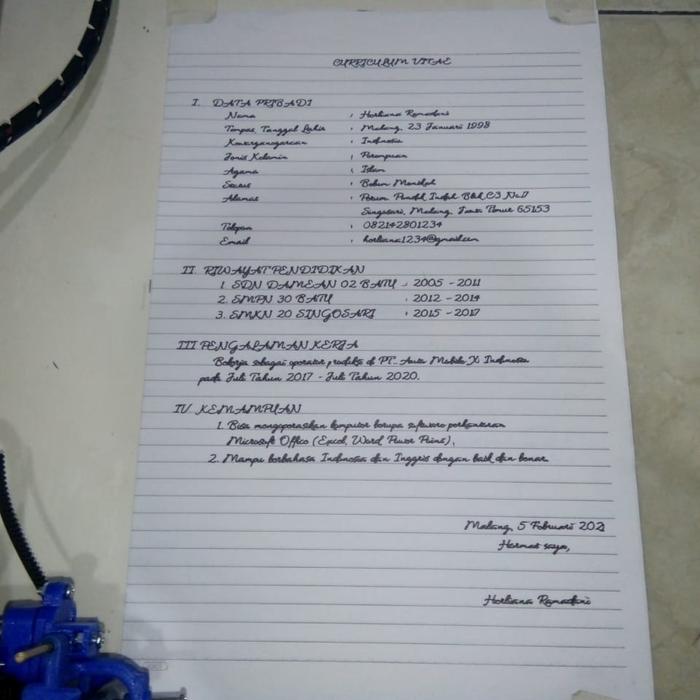 CURRICULUM VITAE
I. DATA PRIBADI
Nama : Herliana Ramadani
Tempat, Tanggal Lahir : Malang, 23 Januari 1998
Kewarganegaraan : Indonesia
Jenis Kelamin : Perempuan
Agama : Islam
Status : Belum Menikah
Alamat : Perum Pondok Indah Blok C3 No.17
Singosari, Malang, Jawa Timur 65153
Telepon : 082142801234
Email : herliana1234@gmail.com
II. RIWAYAT PENDIDIKAN
1. SDN DAMEAN 02 BATU : 2005 - 2011
2. SMPN 30 BATU : 2012 - 2014
3. SMKN 20 SINGOSARI : 2015 - 2017
III PENGALAMAN KERJA
Bekerja sebagai operator produksi di PT. Mobile X Indonesia
pada Juli Tahun 2017 - Juli Tahun 2020.
IV. KEMAMPUAN
1. Bisa mengoperasikan komputer berupa software perkantoran
Microsoft Office (Excel, Word, Power Point),
2. Mampu berbahasa Indonesia dan Inggris dengan baik dan benar
Malang, 5 Februari 2021
Hormat saya,
Herliana Ramadani